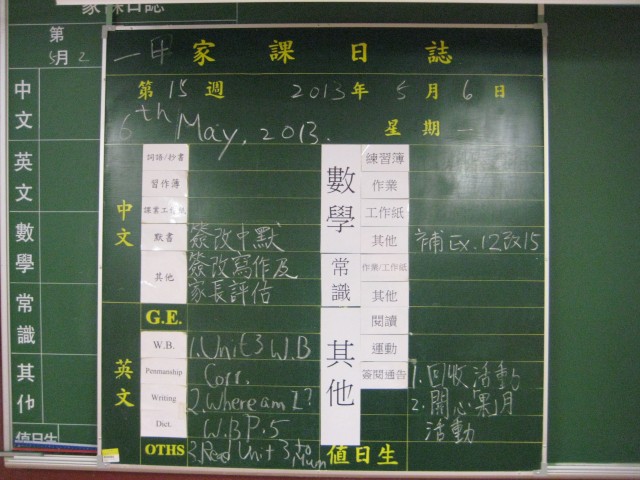 家課日誌
第
5月 2
中文
英文
數學
常識
其他
值日生
一甲 家課日誌
第 15 週 2013 年 5 月 6 日
6th May, 2013. 星期一
中文
詞語/抄書
習作簿
課業工作紙
默書 簽改中默
其他 簽改寫作及
家長評估
G.E.
英文
W.B. 1. Unit 3 W.B
Penmanship Corr.
Writing 2. Where am I?
Dict. W.B P.5
OTHS 3. Read Unit 3 to Mum
數學
練習簿
作業
工作紙
其他 補 Ex. 12改15
常識
作業/工作紙
其他
其他
閱讀
運動
簽閱通告 1. 回收活動
2. 開心「果」月
活動
值日生